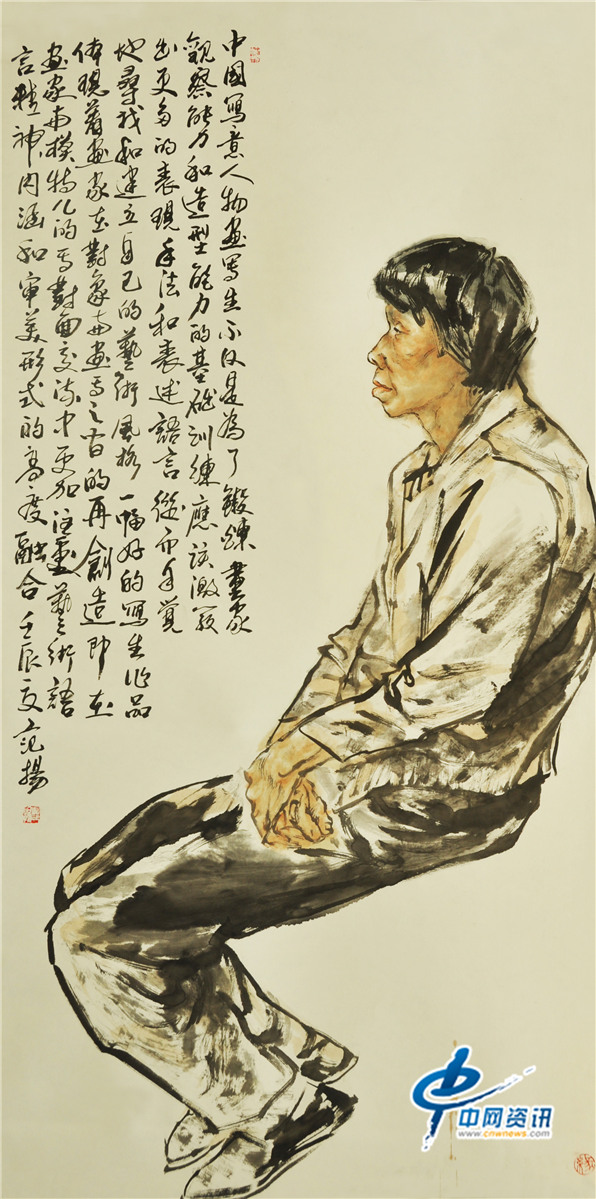 中國寫意人物画寫生不仅是為了鍛鍊畫家
觀察能力和造型能力的基础訓練應該激發
出更多的表現手法和表述語言從而自覺
地尋找和建立自己的藝術風格一幅好的寫生作品
体現着画家在對象与画面之间的再創造即在
画家与模特儿的面對面交流中更加注重藝術語
言精神内涵和审美形式的高度融合壬辰夏范揚
中网资讯
www.cnwnews.com